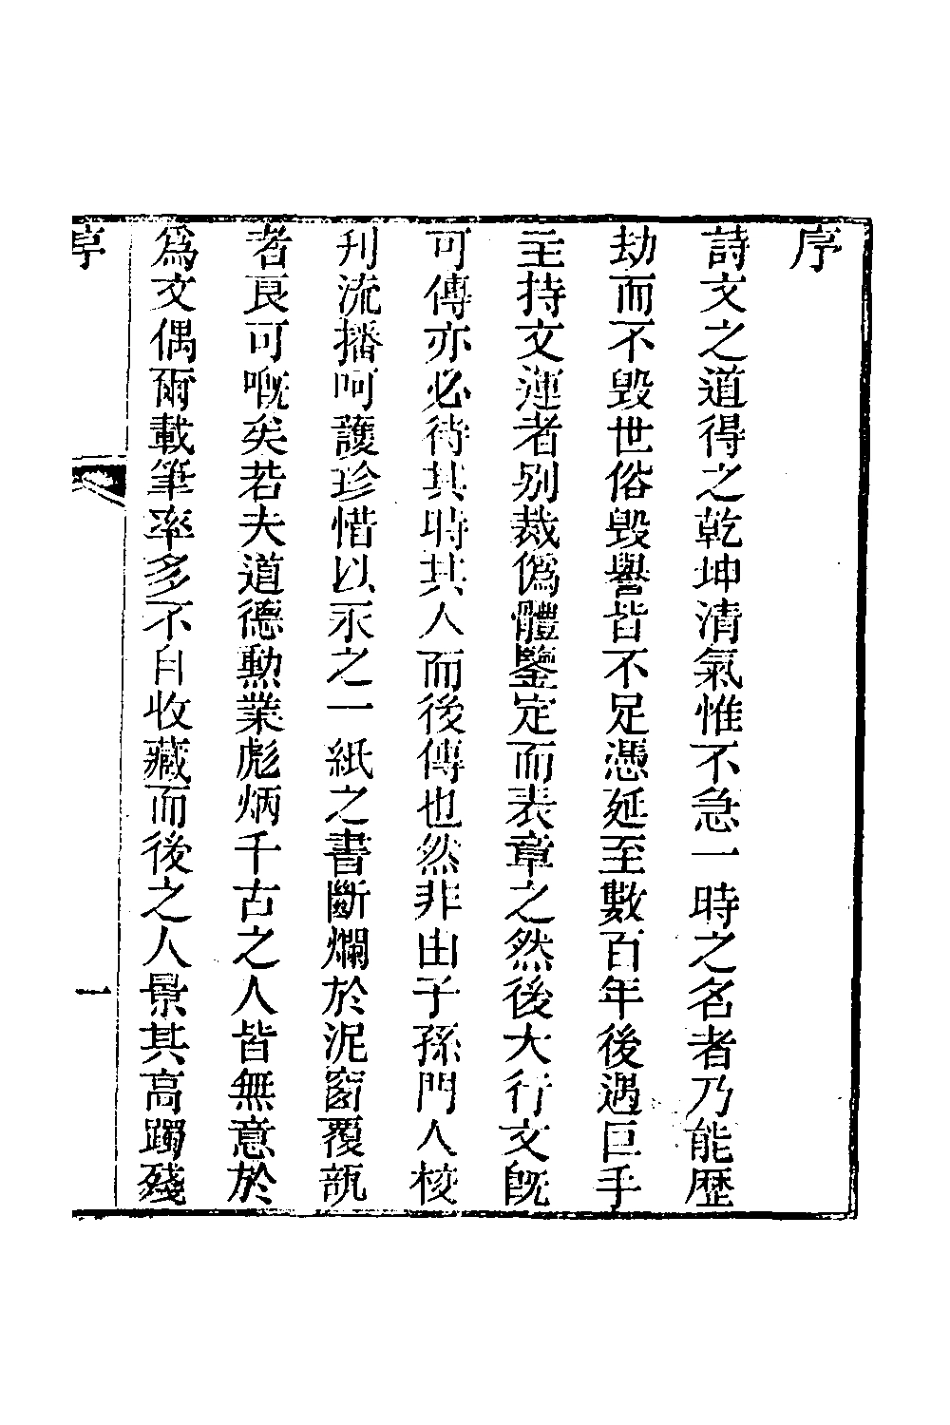 序
詩文之道得之乾坤清氣惟不急一時之名者乃能歴
劫而不毁世俗毁譽皆不足憑延至數百年後遇巨手
主持文運者别裁僞體鑒定而表章之然後大行文旣
可傳亦必待其時其人而後傳也然非由子孫門人校
刊流播呵護珍惜以永之一紙之書斷爛於泥窗覆瓿
者良可嘅矣若夫道德勲業彪炳千古之人皆無意於
爲文偶爾載筆率多不自收藏而後之人景其高躅殘
序
一